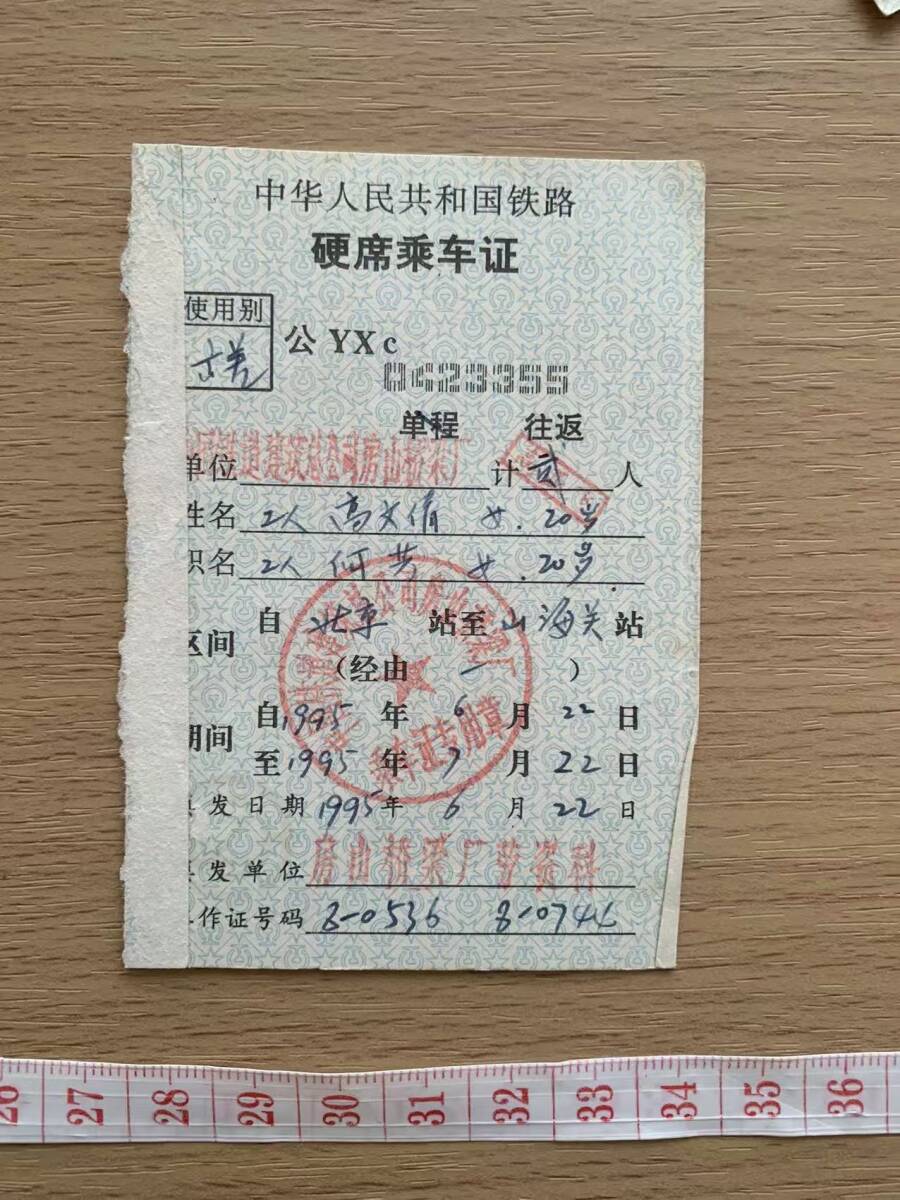 中华人民共和国铁路
硬席乘车证
使用别
公 YXc
0423355
单程 往返
单位 道建筑总公司房山桥梁厂 计 贰 人
姓名 工人 高文倩 女. 20岁
职名 工人 何芸 女. 20岁
区间 自 北京 站至 山海关 站
(经由 一 )
期间 自 1995 年 6 月 22 日
至 1995 年 7 月 22 日
发日期 1995 年 6 月 22 日
发单位 房山桥梁厂劳资科
作证号码 8-0536 8-0744
乘车证专用章
26 27 28 29 30 31 32 33 34 35 36